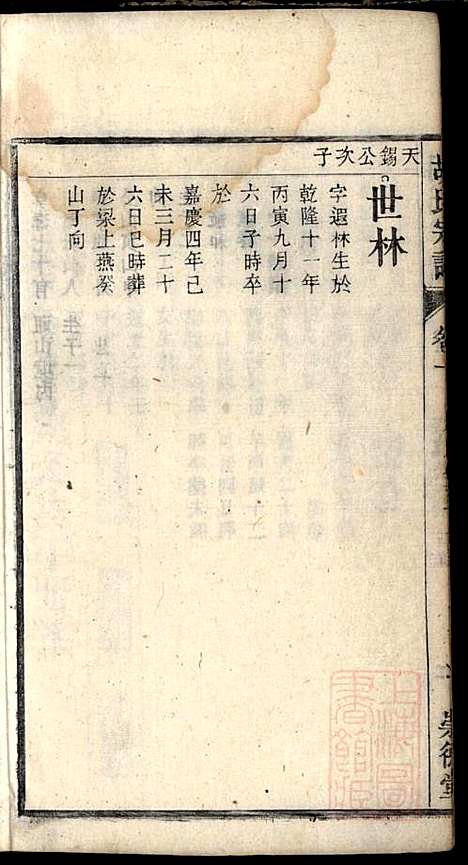 天錫公次子
世林
字遐林生於
乾隆十一年
丙寅九月十
六日子時卒
於
嘉慶四年己
未三月二十
六日巳時葬
於梁上燕癸
山丁向
胡氏宗譜
卷一
崇德堂
上海圖書館所